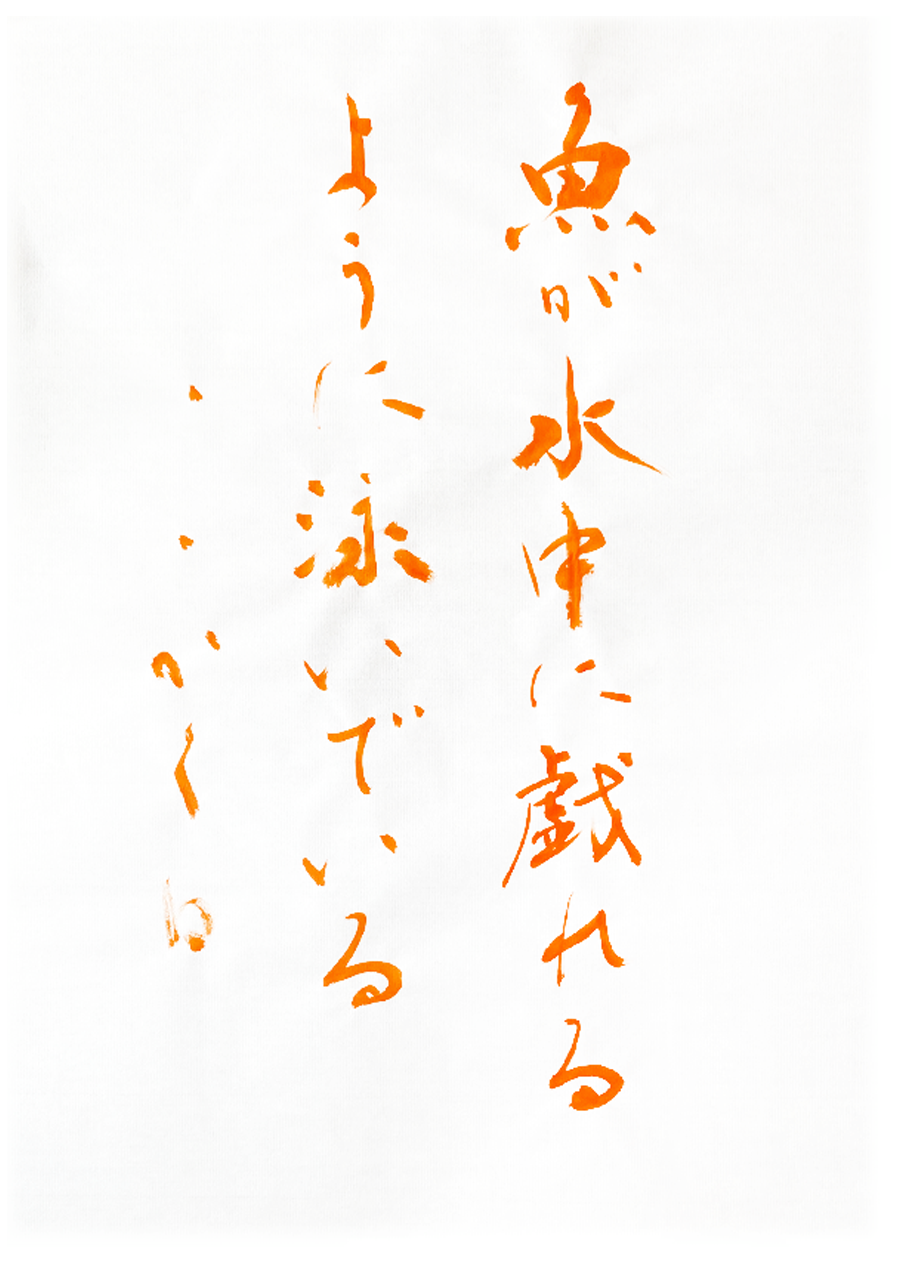 魚が水中に戯れる
ように泳いでいる
がく